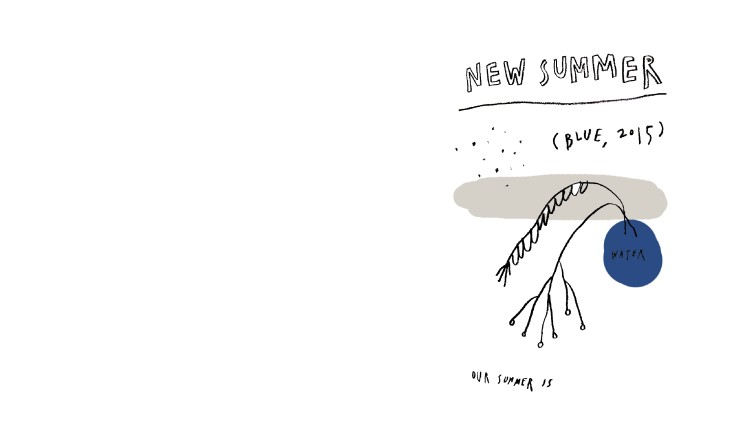 NEW SUMMER
(BLUE, 2015)
WATER
OUR SUMMER IS